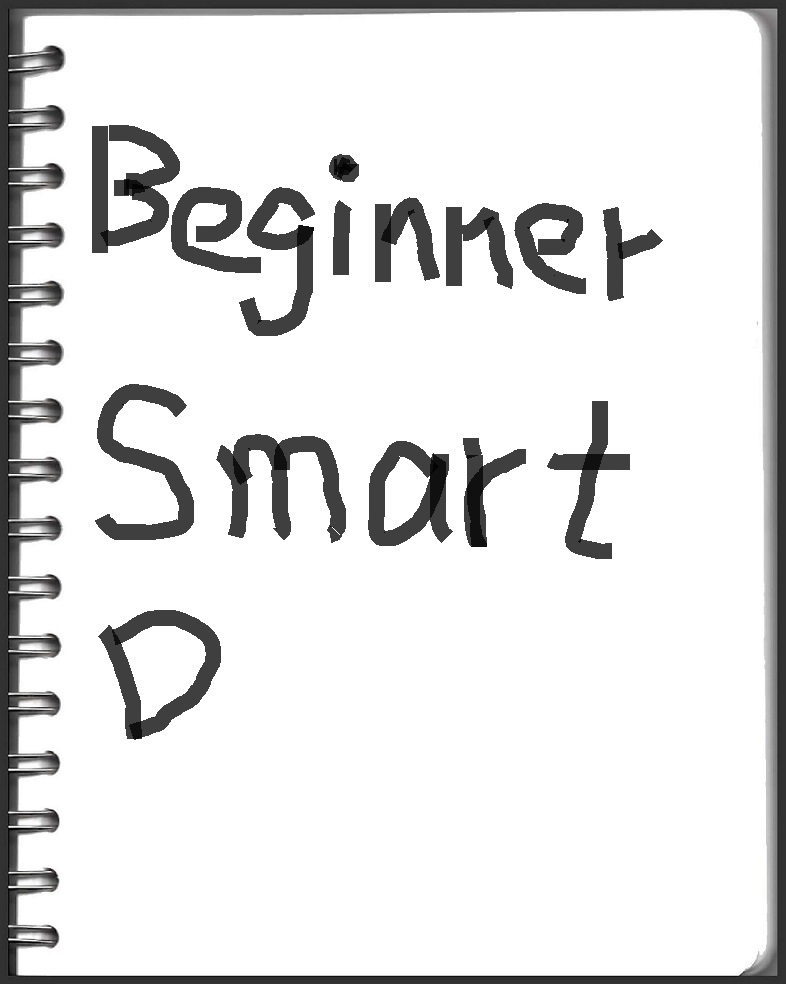 Beginner
Smart
D